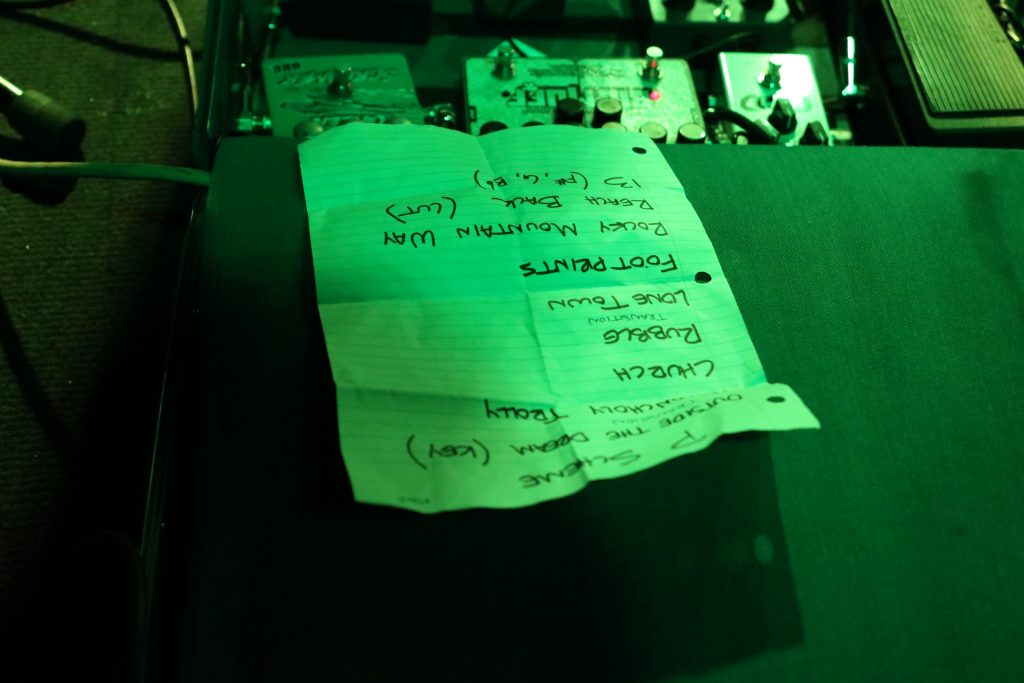 P SCHEME
OUTSIDE THE DREAM (KEY)
TROLLY
CHURCH
RUBBLE
TRANSITION
LONE TOWN
FOOTPRINTS
ROCKY MOUNTAIN WAY
REACH BACK (CUT)
13 (F#, G, Eb)